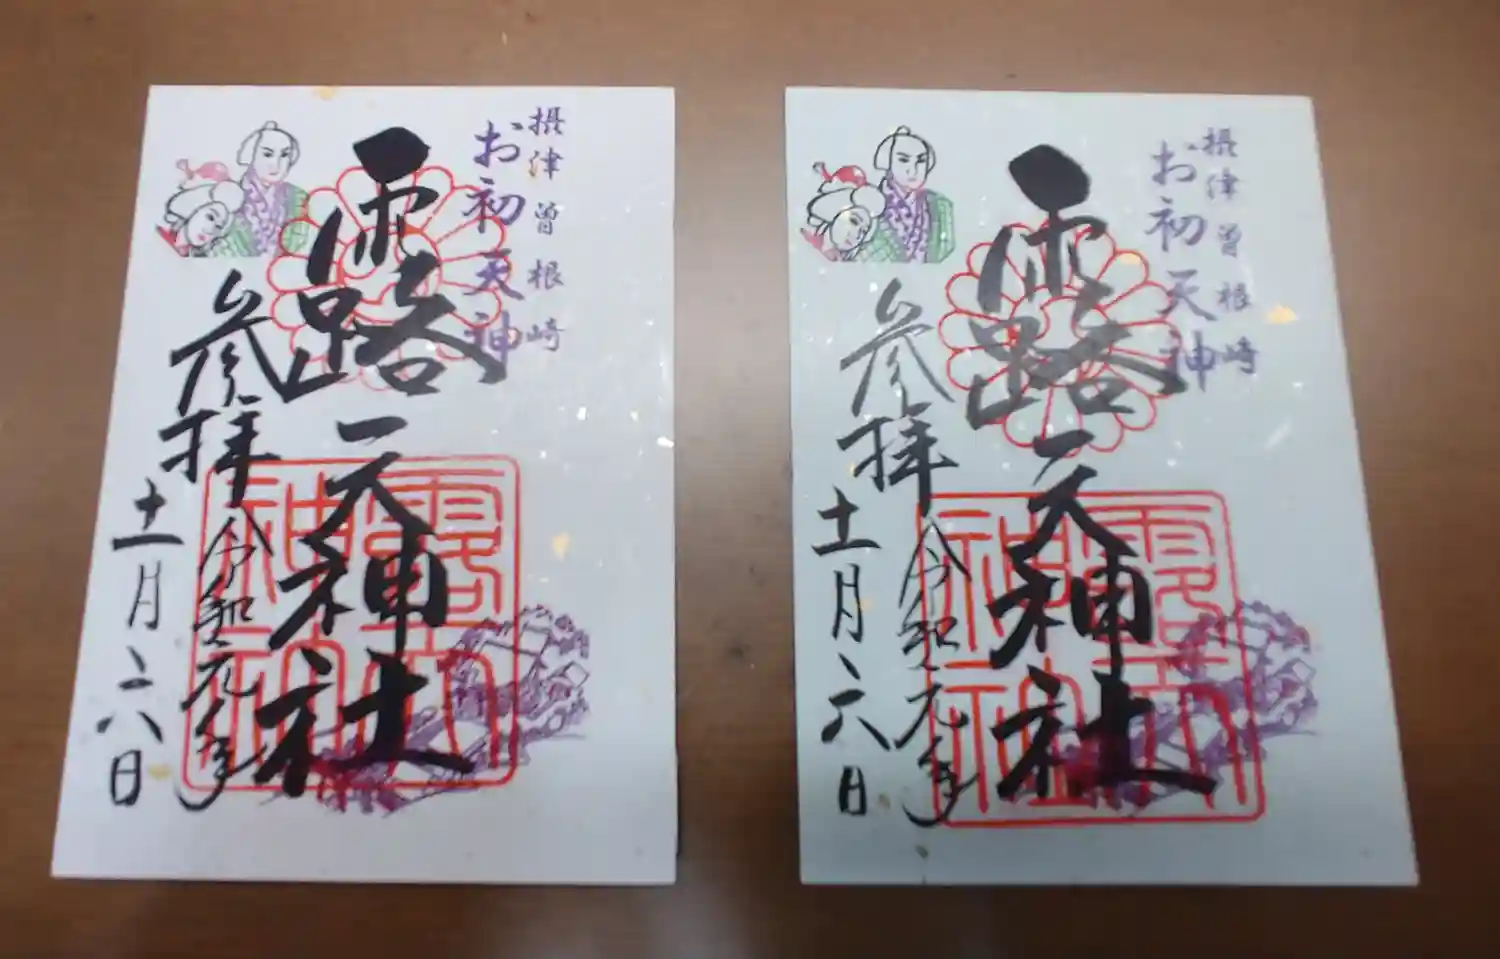 摂津曽根崎
お初天神
露天神社
参拝
令和元年
十一月六日
露天
神社
摂津曽根崎
お初天神
露天神社
参拝
令和元年
十一月六日
露天
神社